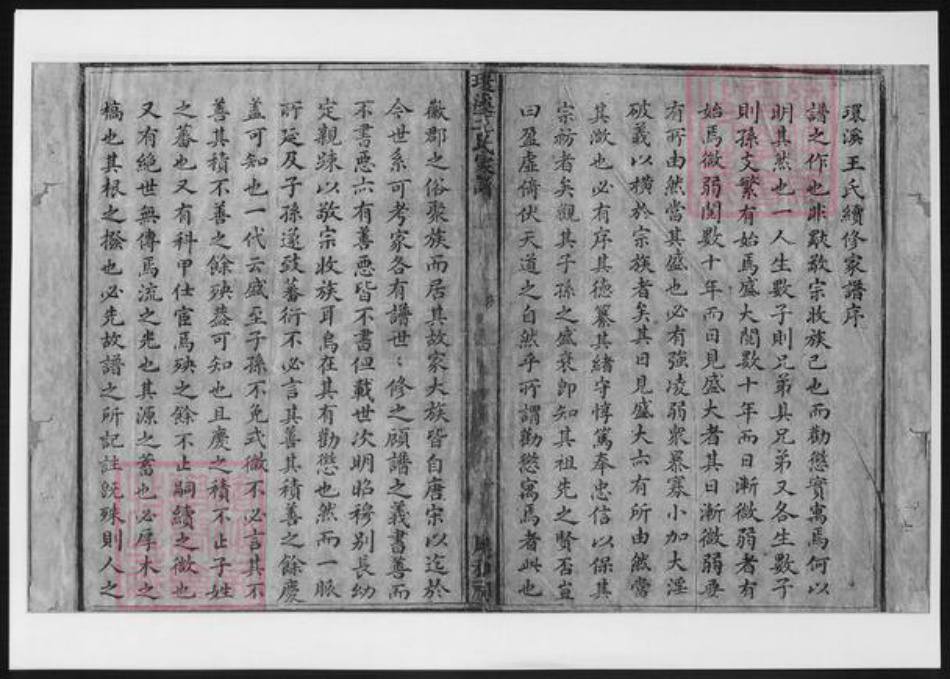 環溪王氏續修家譜序
譜之作也非歎敬宗收族已也而勸懲實寓焉何以
明其然也一人生數子則兄弟具兄弟又各生數子
則孫支繁有始焉盛大閱數十年而日漸微弱者有
始焉微弱閱數十年而日見盛大者其日漸微弱要
有所由然當其盛也必有強凌弱衆暴寡小加大淫
破義以橫於宗族者矣其日見盛大亦有所由然當
其微也必有序其德纂其緒守惇篤奉忠信以保其
宗祊者矣觀其子孫之盛衰即知其祖先之賢否豈
曰盈虛倚伏天道之自然乎所謂勸懲寓焉者此也
環溪王氏家譜
徽郡之俗聚族而居其故家大族皆自唐宋以迄於
今世系可考家各有譜世〻修之顧譜之義書善而
不書惡亦有善惡皆不書但載世次明昭穆别長幼
定親踈以敬宗收族耳烏在其有勸懲也然而一脈
所延及子孫遂致蕃衍不必言其善其積善之餘慶
蓋可知也一代云盛至子孫不免式微不必言其不
善其積不善之餘殃蓋可知也且慶之積不止子姓
之蕃也又有科甲仕宦焉殃之餘不止嗣續之微也
又有絶世無傳焉流之光也其源之蓄也必厚木之
槁也其根之撥也必先故譜之所記註既殊則人之